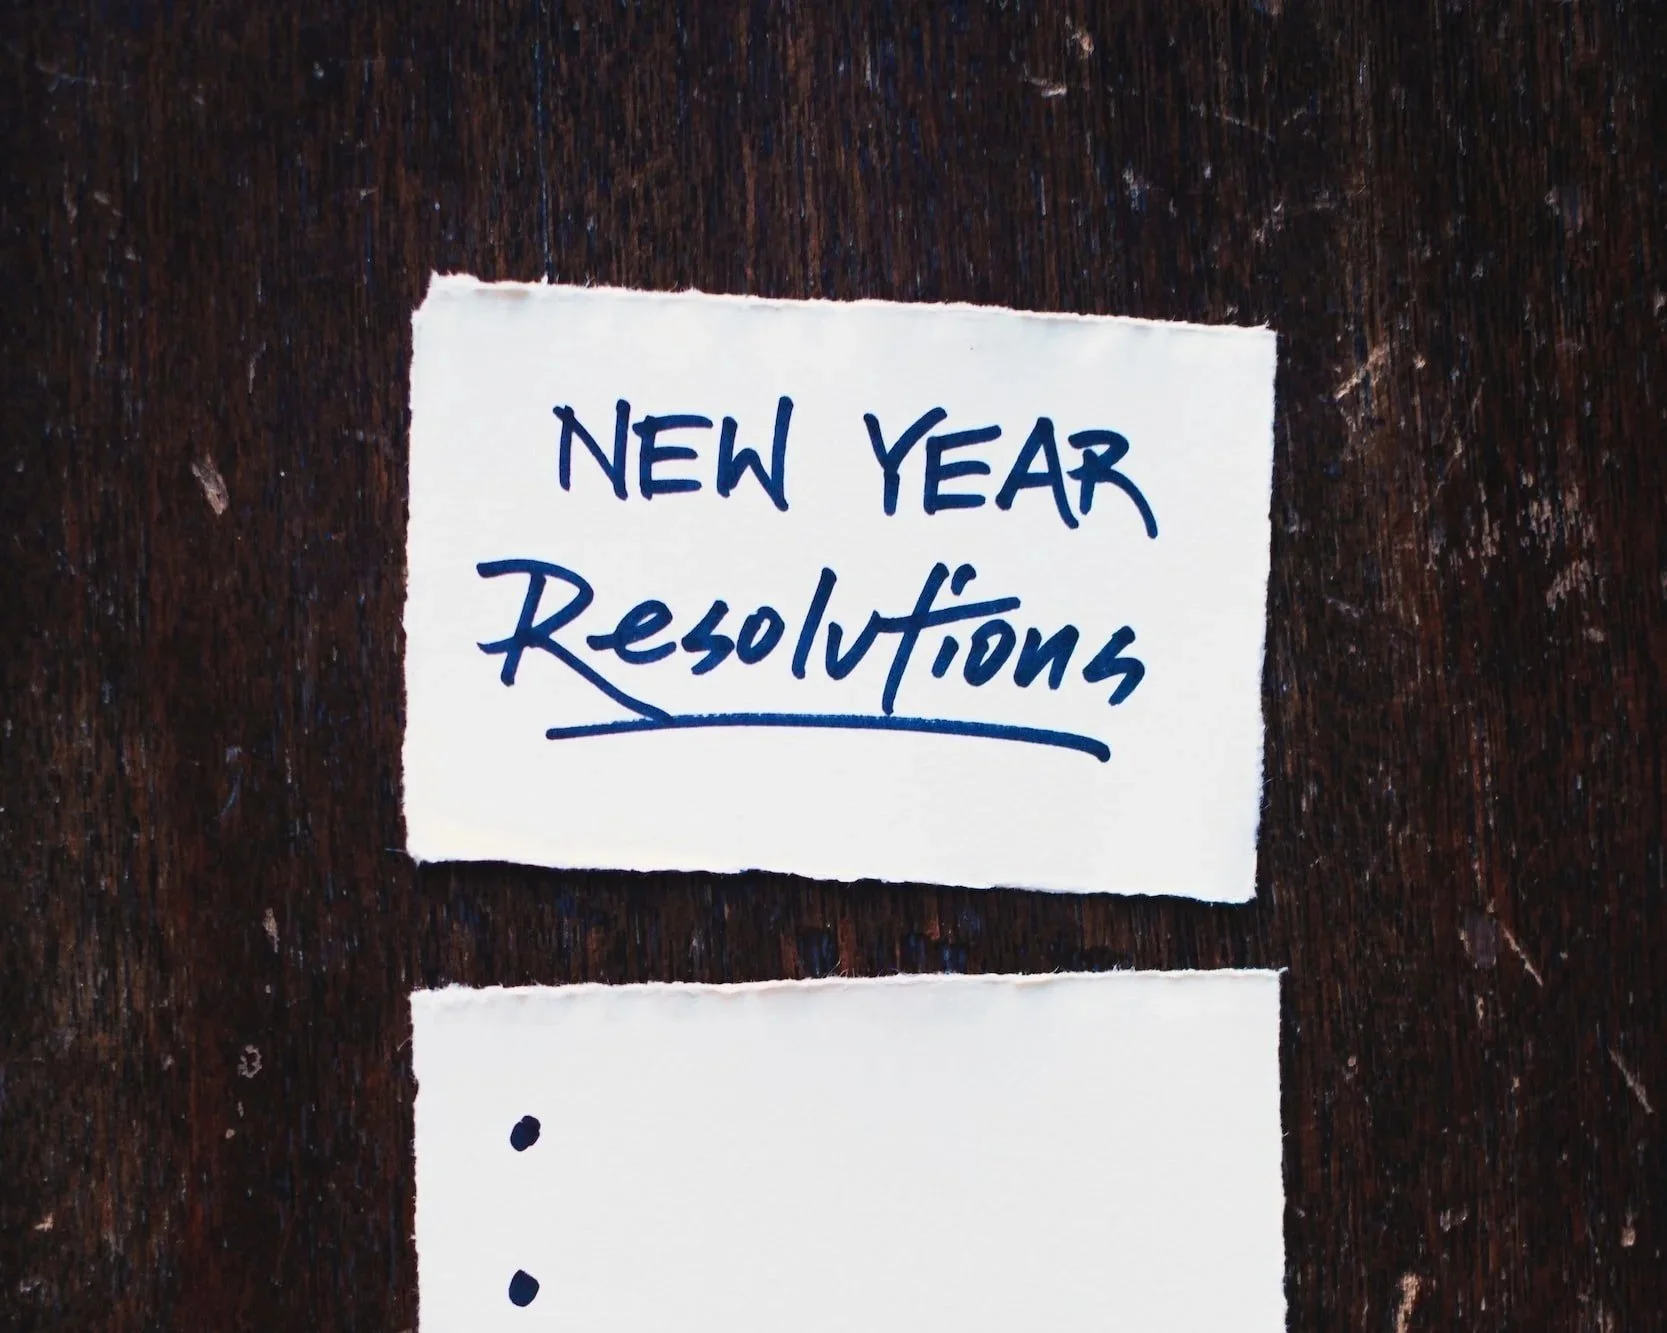 NEW YEAR
Resolutions
•
•